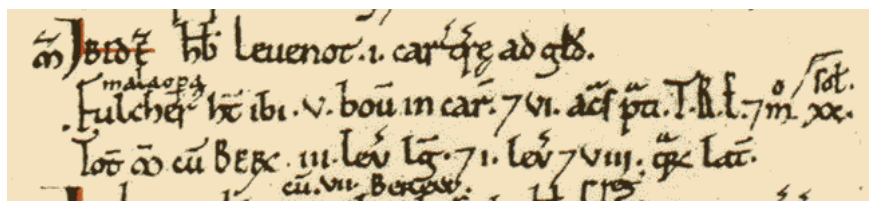 m̃ Ibidē. Hb̄ Leuenot. i. car̃ trę ad gld̄.
malaopa
Fulcher ht̄ ibi. v. boũ in car̃. ⁊ vi. ac̃s p̃ti. T.R.E. ⁊ m̊ xx. sol.
Tot̄ m̃ cũ Berẽ .iii. leũ lg̃. ⁊ i. leũ ⁊ viii. qr̃ lat̃.
cũ. vii. Bereẘ.